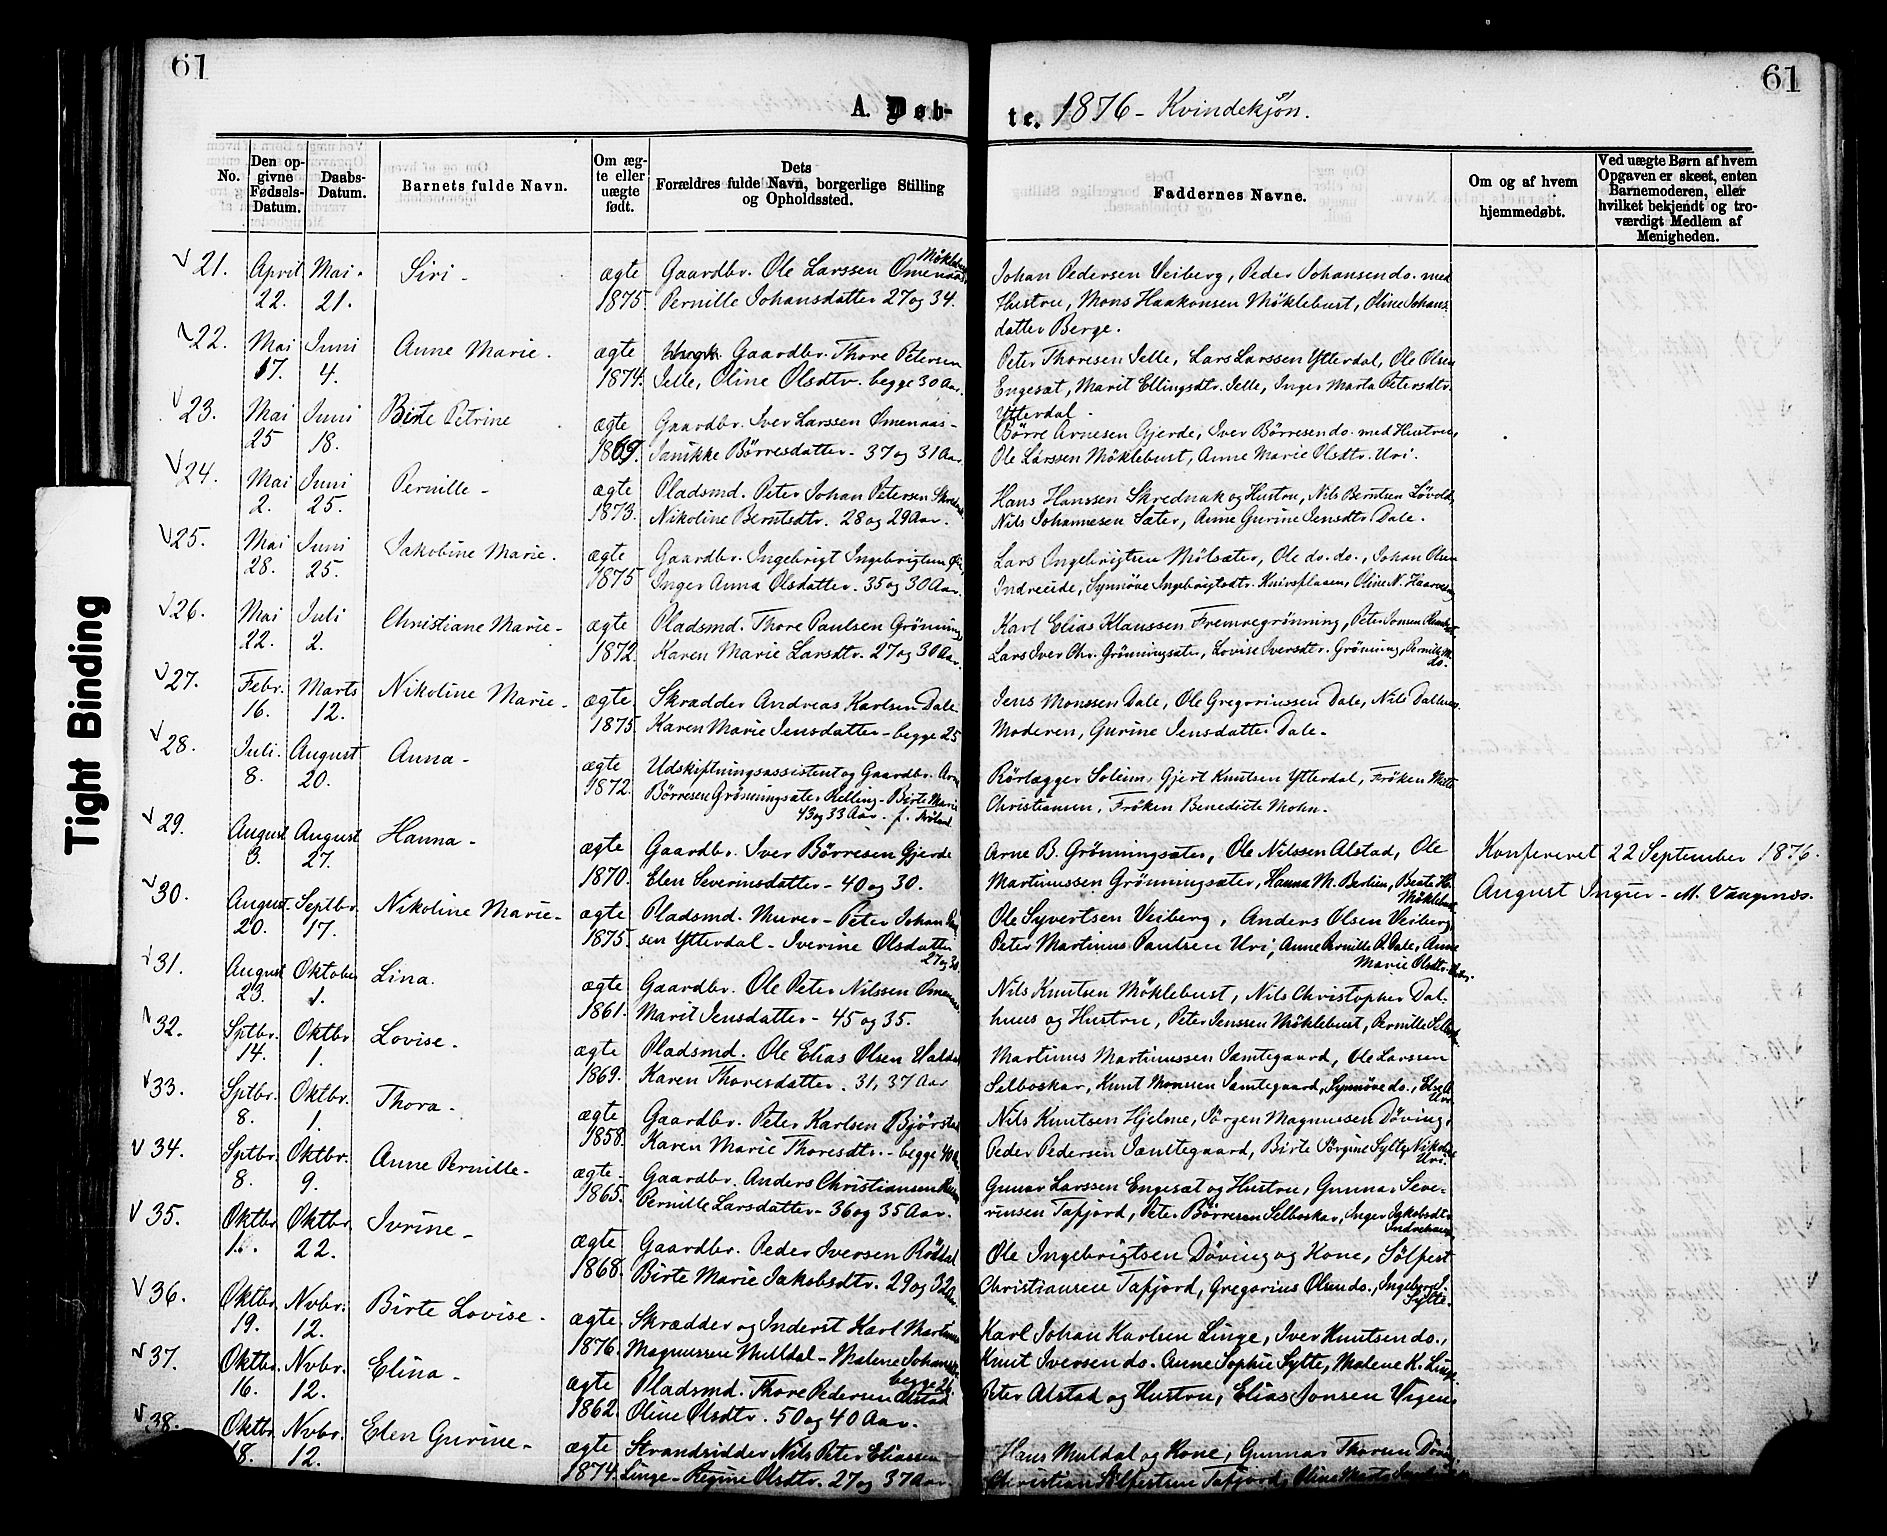 61
61
A. Døb-
te. 1876 - Kvindekjøn.
No.
Den op-
givne
Fødsels-
Datum.
Daabs-
Datum.
Barnets fulde Navn.
Om æg-
te eller
uægte
født.
Dets
Forældres fulde Navn, borgerlige Stilling
og Opholdssted.
Faddernes Navne.
Om og af hvem
hjemmedøbt.
Ved uægte Børn af hvem
Opgaven er skeet, enten
Barnemoderen, eller
hvilket bekjendt og tro-
værdigt Medlem af
Menigheden.
Tight Binding
21. April 22. Mai 21. Siri - ægte 1875.
Gaardbr. Ole Larssen Omenaas
Pernille Johansdatter 27 og 34.
Johan Pedersen Veiberg, Peder Johansen do. med
Hustru, Mons Haakonsen Möklebust, Oline Johans
datter Berge.
22. Mai 17. Juni 4. Anne Marie. ægte 1874.
Gaardbr. Thore Petersen
Jelle, Oline Olsdtr. begge 30 Aar.
Peter Thoresen Jelle, Lars Larssen Ytterdal, Ole Olsen
Engeset, Marit Ellingsdtr. Jelle, Inger Marta Petersdtr.
Ytterdal -
23. Mai 25 Juni 18. Birte Petrine ægte 1869.
Gaardbr. Iver Larssen Omenaas -
Janikke Börresdatter - 37 og 31 Aar
Börre Arnesen Gjerde, Iver Börresen do. med Hustru,
Ole Larssen Möklebust, Anne Marie Olsdtr. Uri.
24. Mai 2. Juni 25. Pernille - ægte 1873.
Pladsmd. Peter Johan Petersen
Nikoline Berntsdtr. 28 og 29 Aar.
Hans Hanssen Skrednak og Hustru, Nils Berntsen Lövold,
Nils Johannesen Sæter, Anne Gurine Jensdtr. Dale.
25. Mai 28. Juni 25. Jakobine Marie. ægte 1875
Gaardbr. Ingebrigt Ingebrigtsen
Inger Anna Olsdatter - 35 og 30 Aar.
Lars Ingebrigtsen Mölsæter, Ole do. do., Johan Olsen
Indreeide, Synnöve Ingebrigtsdtr. Knivsflaaen, Oline N.
26. Mai 22. Juli 2. Christiane Marie - ægte 1872.
Pladsmd. Thore Paulsen Grönning
Karen Marie Larsdtr. 27 og 30 Aar
Karl Elias Klaussen Fremregrönning, Peter Jonsen
Lars Iver Chr. Grönningsæter, Lovise Iversdtr. Grönning, Pernille M. do.
27. Febr. 16. Marts 12. Nikoline Marie - ægte 1875.
Skrædder Andreas Karlsen Dale
Karen Marie Jensdatter - begge 25
Jens Monssen Dale, Ole Gregoriussen Dale, Nils Dalhuus
Moderen, Gurine Jensdatter Dale -
28. Juli 8. August 20. Anna - ægte 1872.
Udskiftningsassistent og Gaardbr. Arne
Börresen Grönningsæter Relling - Birte Marie
43 og 33 Aar. f.
Rörlægger Soleim, Gjert Knutsen Ytterdal, Fröken Mette
Christiansen, Fröken Benedicte Molin.
29. August 3. August 27. Hanna - ægte 1870.
Gaardbr. Iver Börresen Gjerde
Elen Severinsdatter - 40 og 30.
Arne B. Grönningsæter, Ole Nilssen Alstad, Ole
Martinussen Grönningsæter, Hanna M. Berlien, Beate H.
Möklebust
Konfereret 22 September 1876.
August Ingier - M. Vaagenæs.
30. August 20. Septbr. 17. Nikoline Marie - ægte 1875.
Pladsmd. Murer - Peter Johan
sen Ytterdal - Iverine Olsdatter
27 og 30.
Ole Syvertsen Veiberg, Anders Olsen Veiberg,
Peter Martinus Paulsen Uri, Anne Pernille P. Dale, Anne
Marie Olsdtr.
31. August 23. Oktober 1. Lina. ægte 1861.
Gaardbr. Ole Peter Nilssen Omenaas
Marit Jensdatter - 45 og 35.
Nils Knutsen Möklebust, Nils Christopher Dal-
huus og Hustru, Peter Jenssen Möklebust, Pernille
32. Sptbr. 14. Oktbr. 1. Lovise. ægte 1869.
Pladsmd. Ole Elias Olsen
Karen Thoresdatter. 31, 37 Aar
Martinus Martinussen Jamtegaard, Ole Larssen
Selboskar, Knut Monssen Jamtegaard, Synnöve do.,
Uri.
33. Sptbr. 8. Oktbr. 1. Thora - ægte 1858.
Gaardbr. Peter Karlsen Bjørstad
Karen Marie Thoresdtr. - begge 40
Nils Knutsen Hjelme, Jörgen Magnussen Döving,
Peder Pedersen Jamtegaard, Birte Jörgine Sylte, Nikoline
Uri.
34. Sptbr. 8. Oktbr. 9. Anne Pernille - ægte - 1865.
Gaardbr. Anders Christiansen
Pernille Larsdatter - 36 og 35 Aar.
Gunar Larssen Engeset og Hustru, Gunnar Seve-
rinsen Tafjord, Peter Börresen Selboskar, Inger Jakobsdtr.
35. Oktbr. 1. Oktbr. 22. Ivrine - ægte 1868.
Gaardbr. Peder Iversen Röddal
Birte Marie Jakobsdtr. 29 og 32 Aar
Ole Ingebrigtsen Döving og Kone, Sölfest
Christiansen Tafjord, Gregorius Olsen do., Ingeborg I.
Sylte.
36. Oktbr. 19. Nvbr. 12. Birte Lovise - ægte 1876.
Skrædder og Inderst Karl Martinus
Magnussen Muldal - Malene Johansdtr.
begge 26
Karl Johan Karlsen Linge, Iver Knutsen do.,
Knut Iversen do. Anne Sophie Sylte, Malene K. Linge.
37. Oktbr. 16. Nvbr. 12. Elina - ægte 1862.
Pladsmd. Thore Pedersen Alstad
Oline Olsdtr. 50 og 40 Aar.
Peter Alstad og Hustru, Elias Jonsen
38. Oktbr. 18. Nvbr. 12. Elen Gurine - ægte 1874.
Strandsidder Nils Peter Eliassen
Linge - Regine Olsdtr. 27 og 37 Aar
Hans Muldal og Kone, Gunnar Thoresen Döving
Christian Sölfestsen Tafjord, Oline Marta